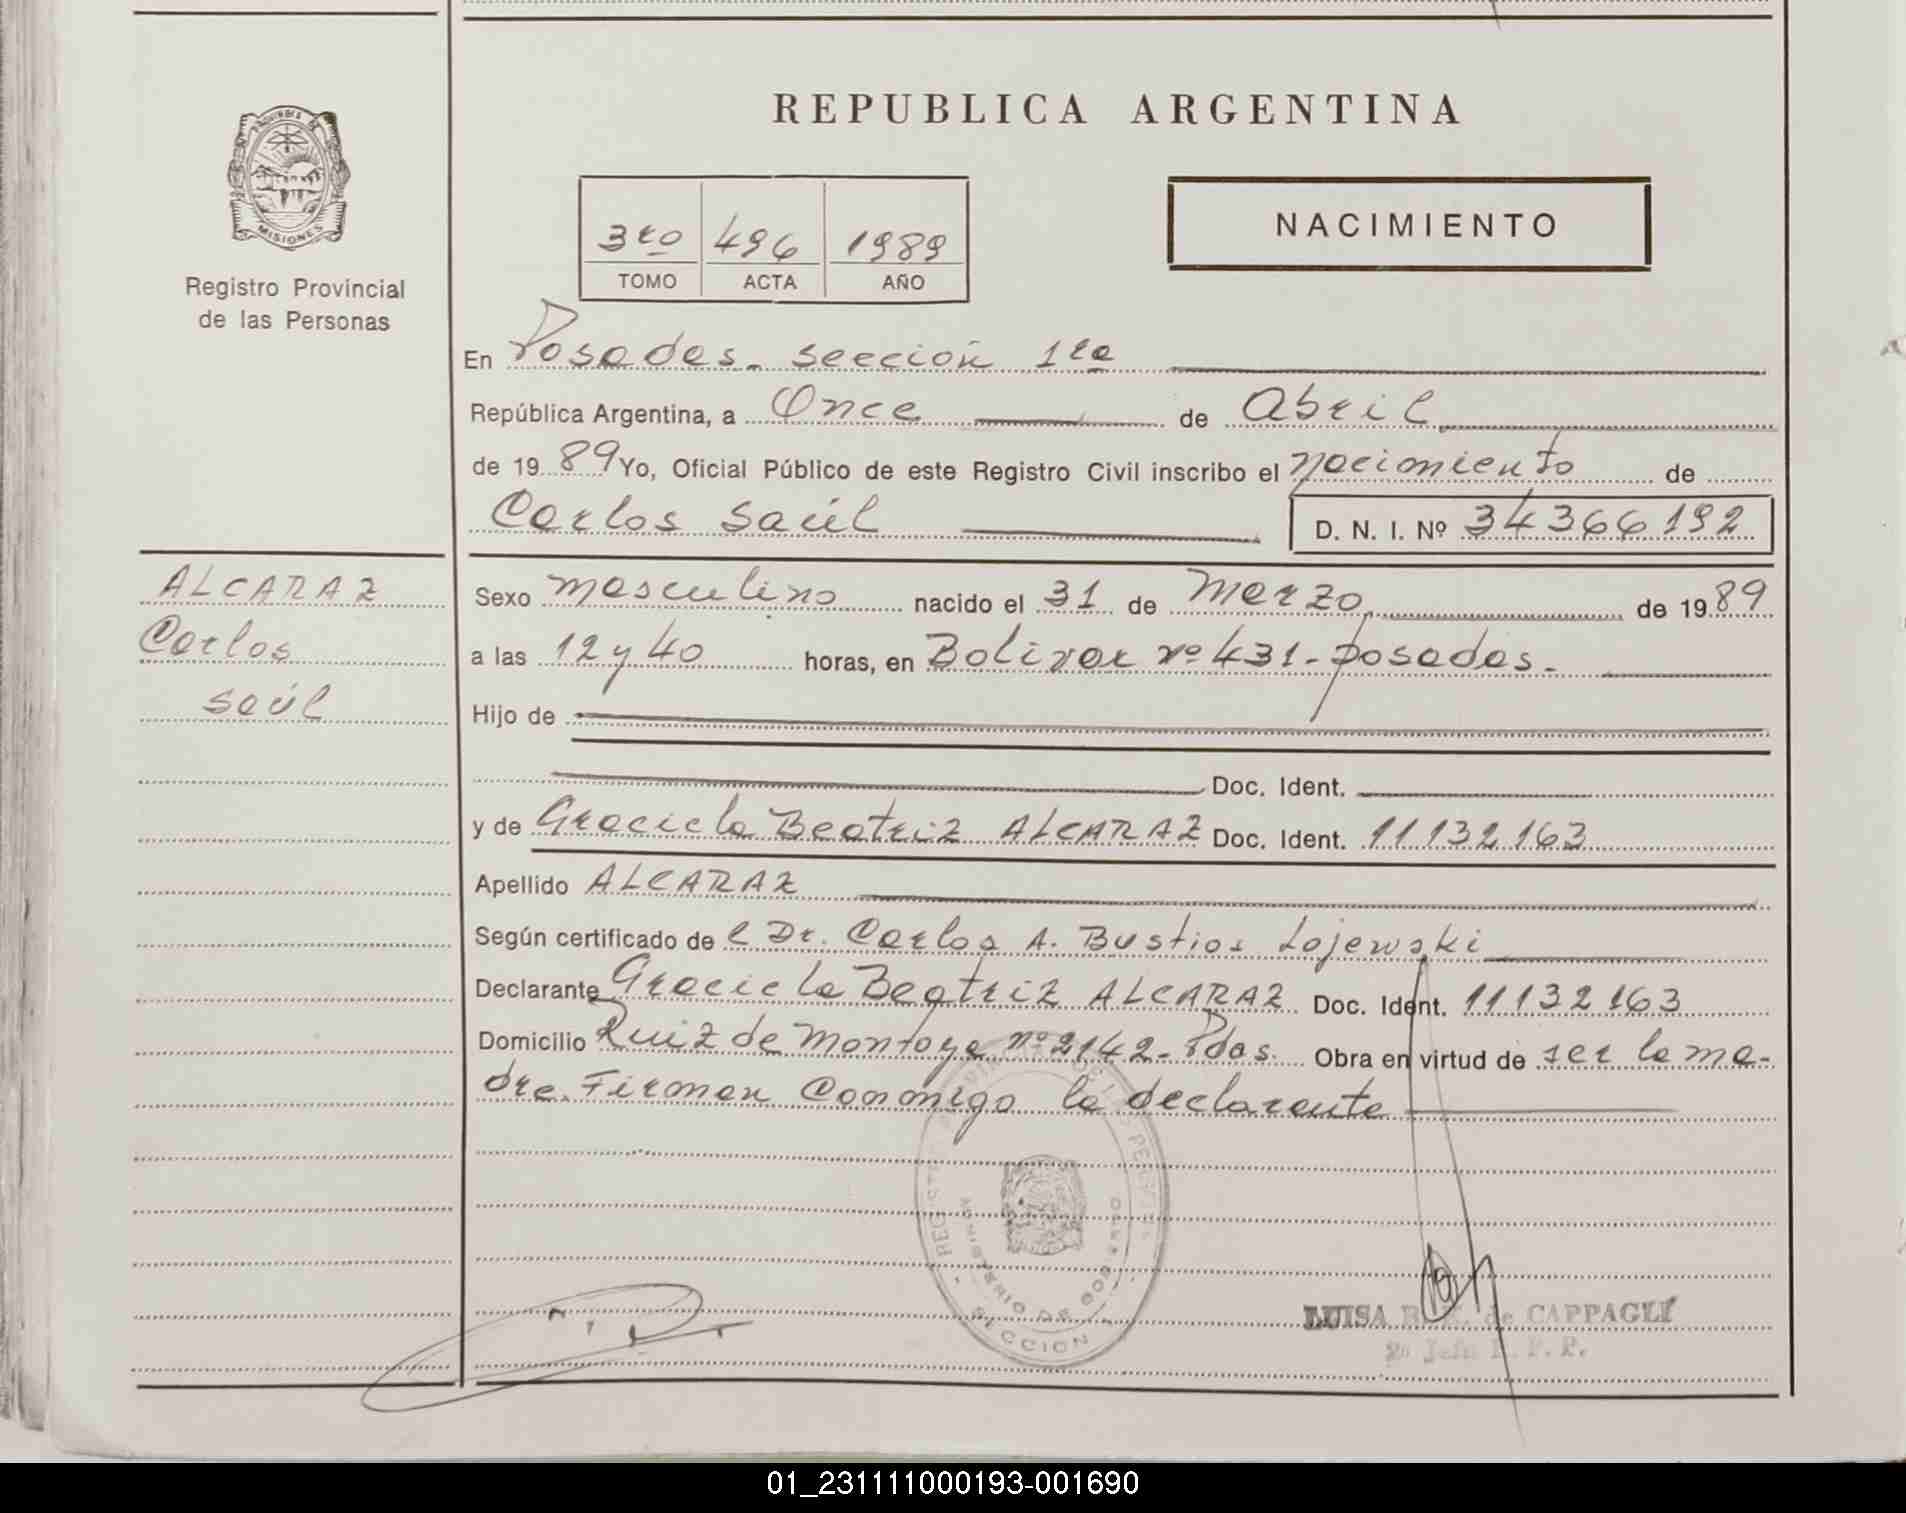 REPUBLICA ARGENTINA
PROVINCIA DE
MISIONES
Registro Provincial
de las Personas
3ro 496 1989
TOMO ACTA AÑO
NACIMIENTO
En Posadas - sección 1ra
República Argentina, a Once de Abril
de 1989 Yo, Oficial Público de este Registro Civil inscribo el nacimiento de
Carlos Saúl D. N. I. Nº 34366192
ALCARAZ
Carlos
Saúl
Sexo masculino nacido el 31 de Marzo de 1989
a las 12 y 40 horas, en Bolivar nº 431 - posadas.
Hijo de
Doc. Ident.
y de Graciela Beatriz ALCARAZ Doc. Ident. 11132163
Apellido ALCARAZ
Según certificado de el Dr. Carlos A. Bustios Lojewski
Declarante Graciela Beatriz ALCARAZ Doc. Ident. 11132163
Domicilio Ruiz de Montoya nº 2142 - Pdas. Obra en virtud de ser la ma-
dre. Firman Conmigo la declarante
MINISTERIO DE GOBIERNO
SECCION
LUISA de CAPPAGLI
01_231111000193-001690